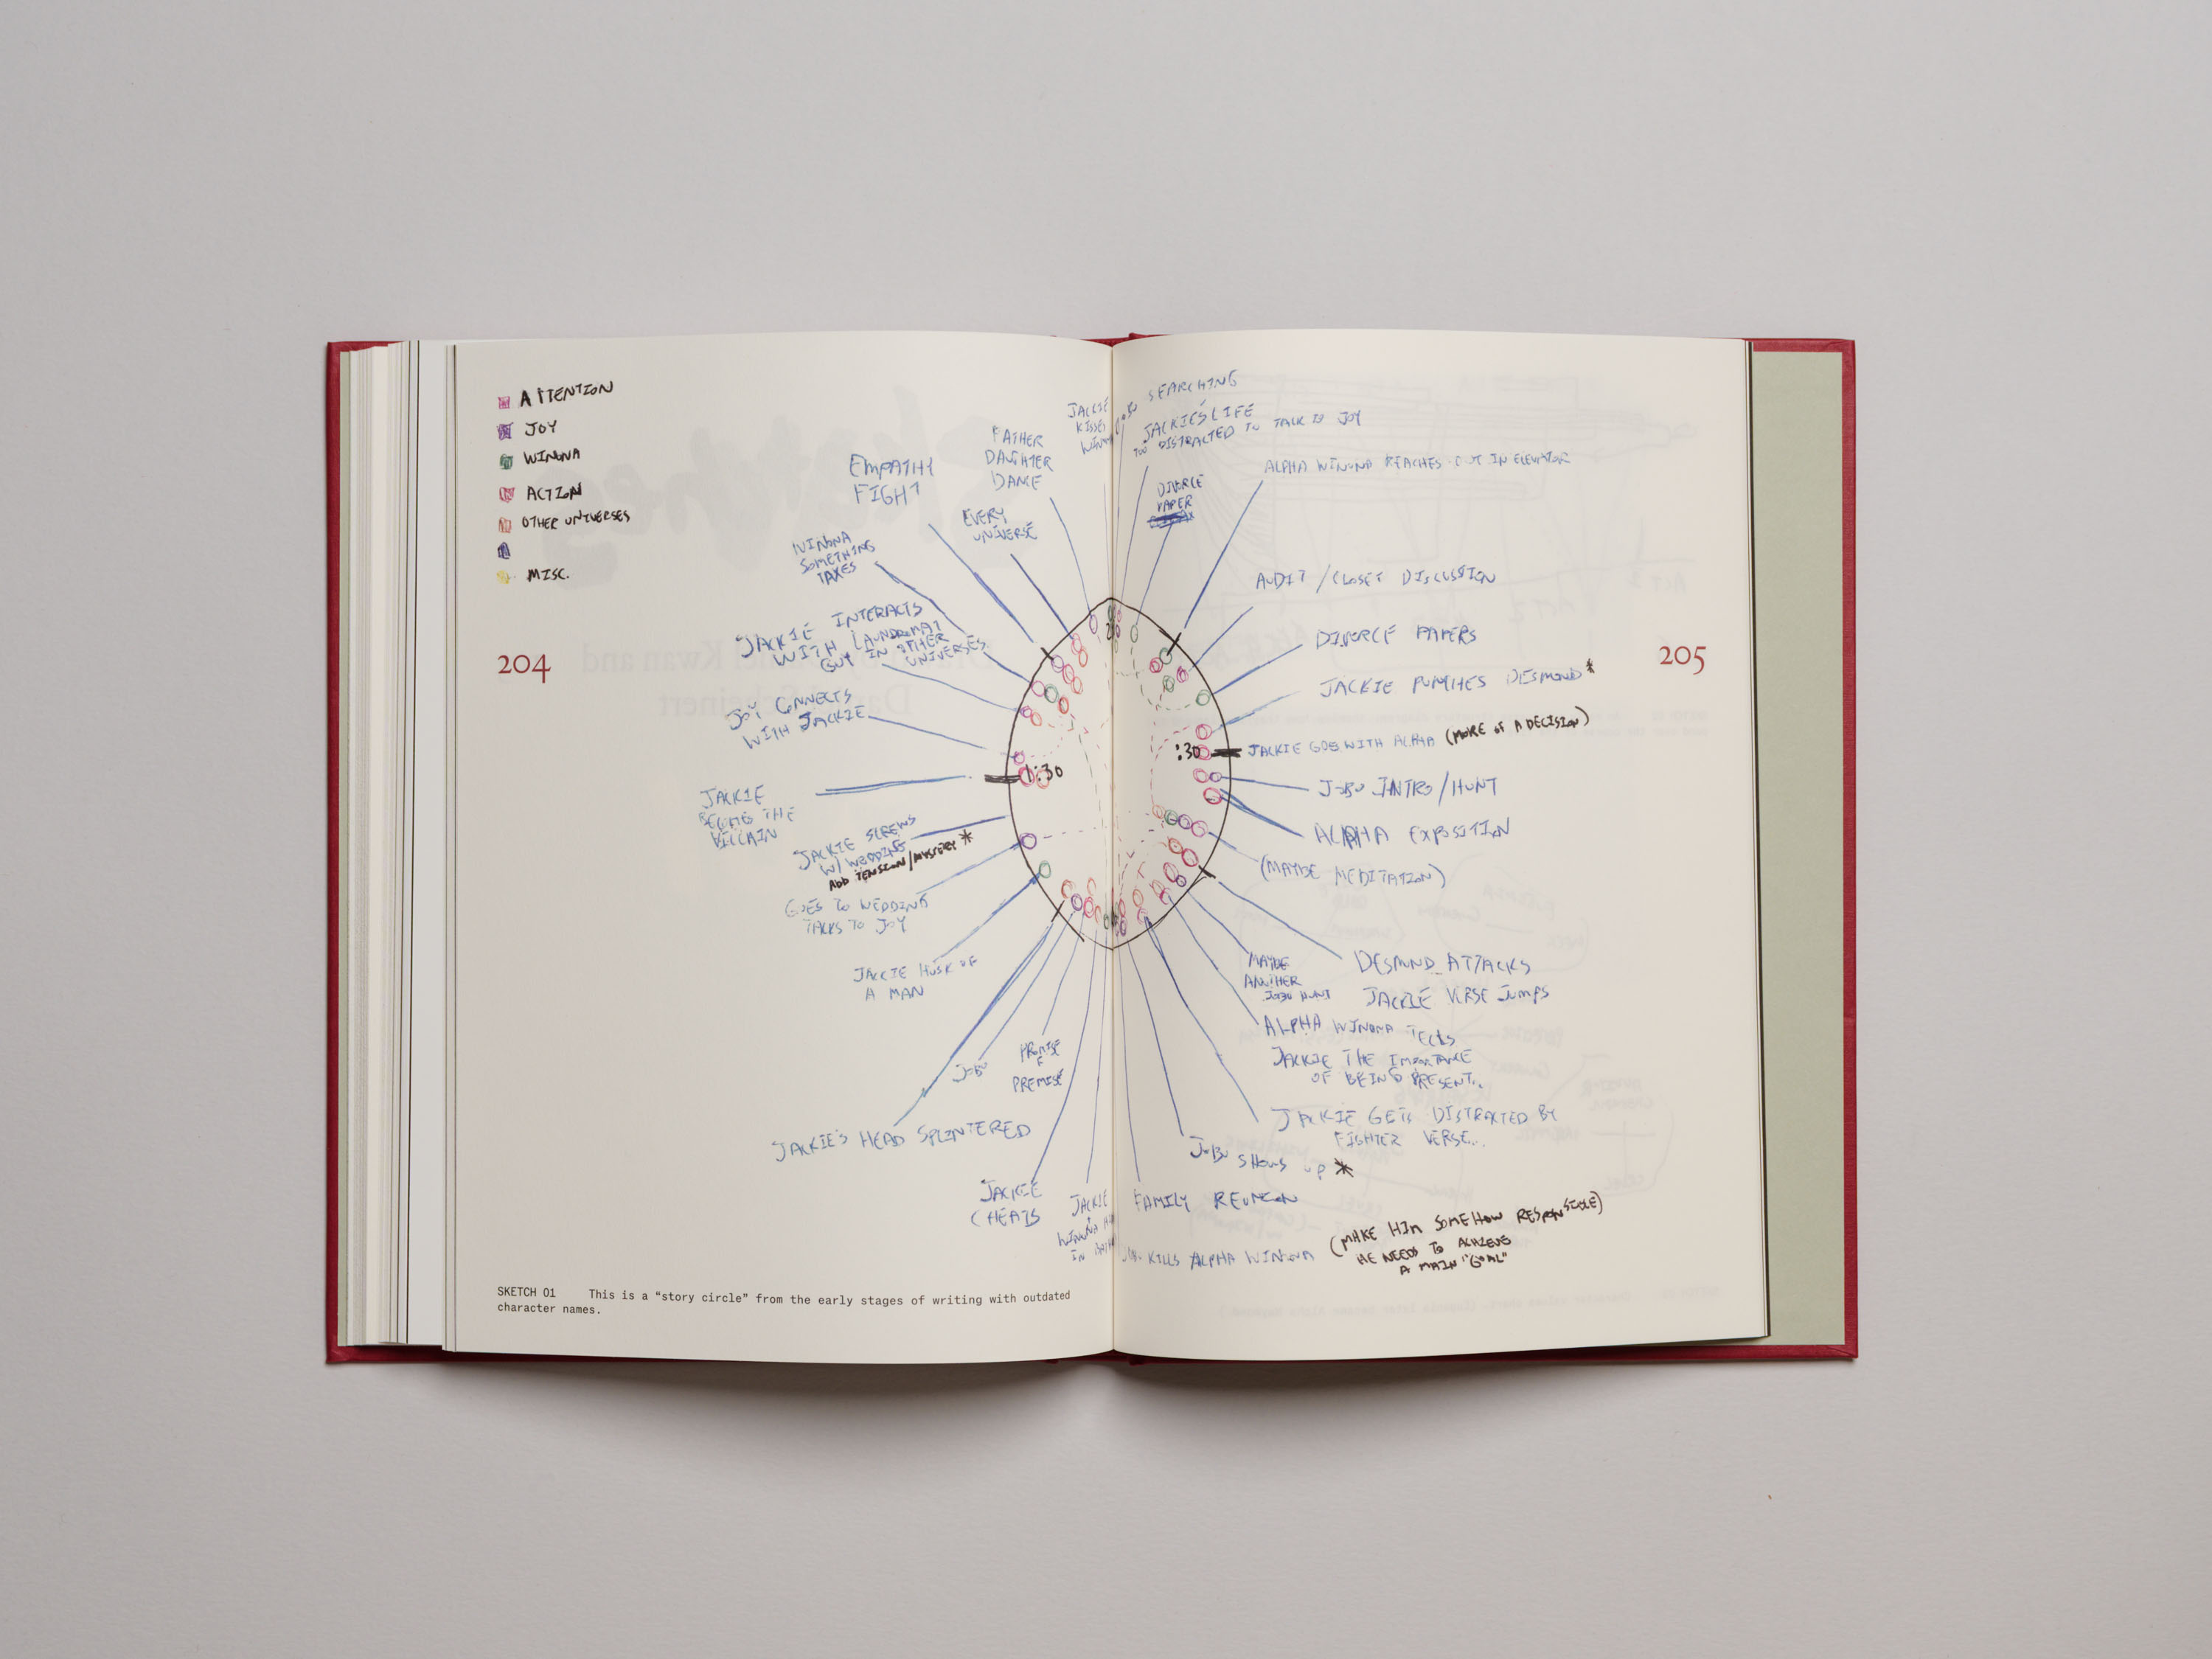 ATTENTION
JOY
WINONA
ACTION
OTHER UNIVERSES
MISC.
204
EMPATHY
FIGHT
FATHER
DAUGHTER
DANCE
JACKIE
KISSES
EVERY
UNIVERSE
WINONA
SOMETHING
TAXES
JACKIE INTERACTS
WITH LAUNDROMAT
GUY IN OTHER
UNIVERSES
JOY CONNECTS
WITH JACKIE
1:30
JACKIE
BECOMES THE
VILLAIN
JACKIE SCREWS
W/ WEDDING
ADD TENSION/MYSTERY *
GOES TO WEDDING
TALKS TO JOY
JACKIE HUSK OF
A MAN
JOBU
PROMISE
OF
PREMISE
JACKIE'S HEAD SPLINTERED
JACKIE
CHEATS
JACKIE
WINONA
IN
SKETCH 01 This is a “story circle” from the early stages of writing with outdated
character names.
JOBU SEARCHING
JACKIE'S LIFE
TOO DISTRACTED TO TALK TO JOY
DIVORCE
PAPER
ALPHA WINONA REACHES OUT IN ELEVATOR
AUDIT / CLOSET DISCUSSION
DIVORCE PAPERS
205
JACKIE PUNCHES DESMOND *
:30
JACKIE GOES WITH ALPHA (MORE OF A DECISION)
JOBU INTRO/HUNT
ALPHA EXPOSITION
(MAYBE MEDITATION)
DESMOND ATTACKS
MAYBE
ANOTHER
JOBU HUNT
JACKIE VERSE JUMPS
ALPHA WINONA TELLS
JACKIE THE IMPORTANCE
OF BEING PRESENT..
JACKIE GETS DISTRACTED BY
FIGHTER VERSE...
JOBU SHOWS UP *
FAMILY REUNION
KILLS ALPHA WINONA
(MAKE HIM SOMEHOW RESPONSIBLE)
HE NEEDS TO ACHIEVE
A MAIN "GOAL"